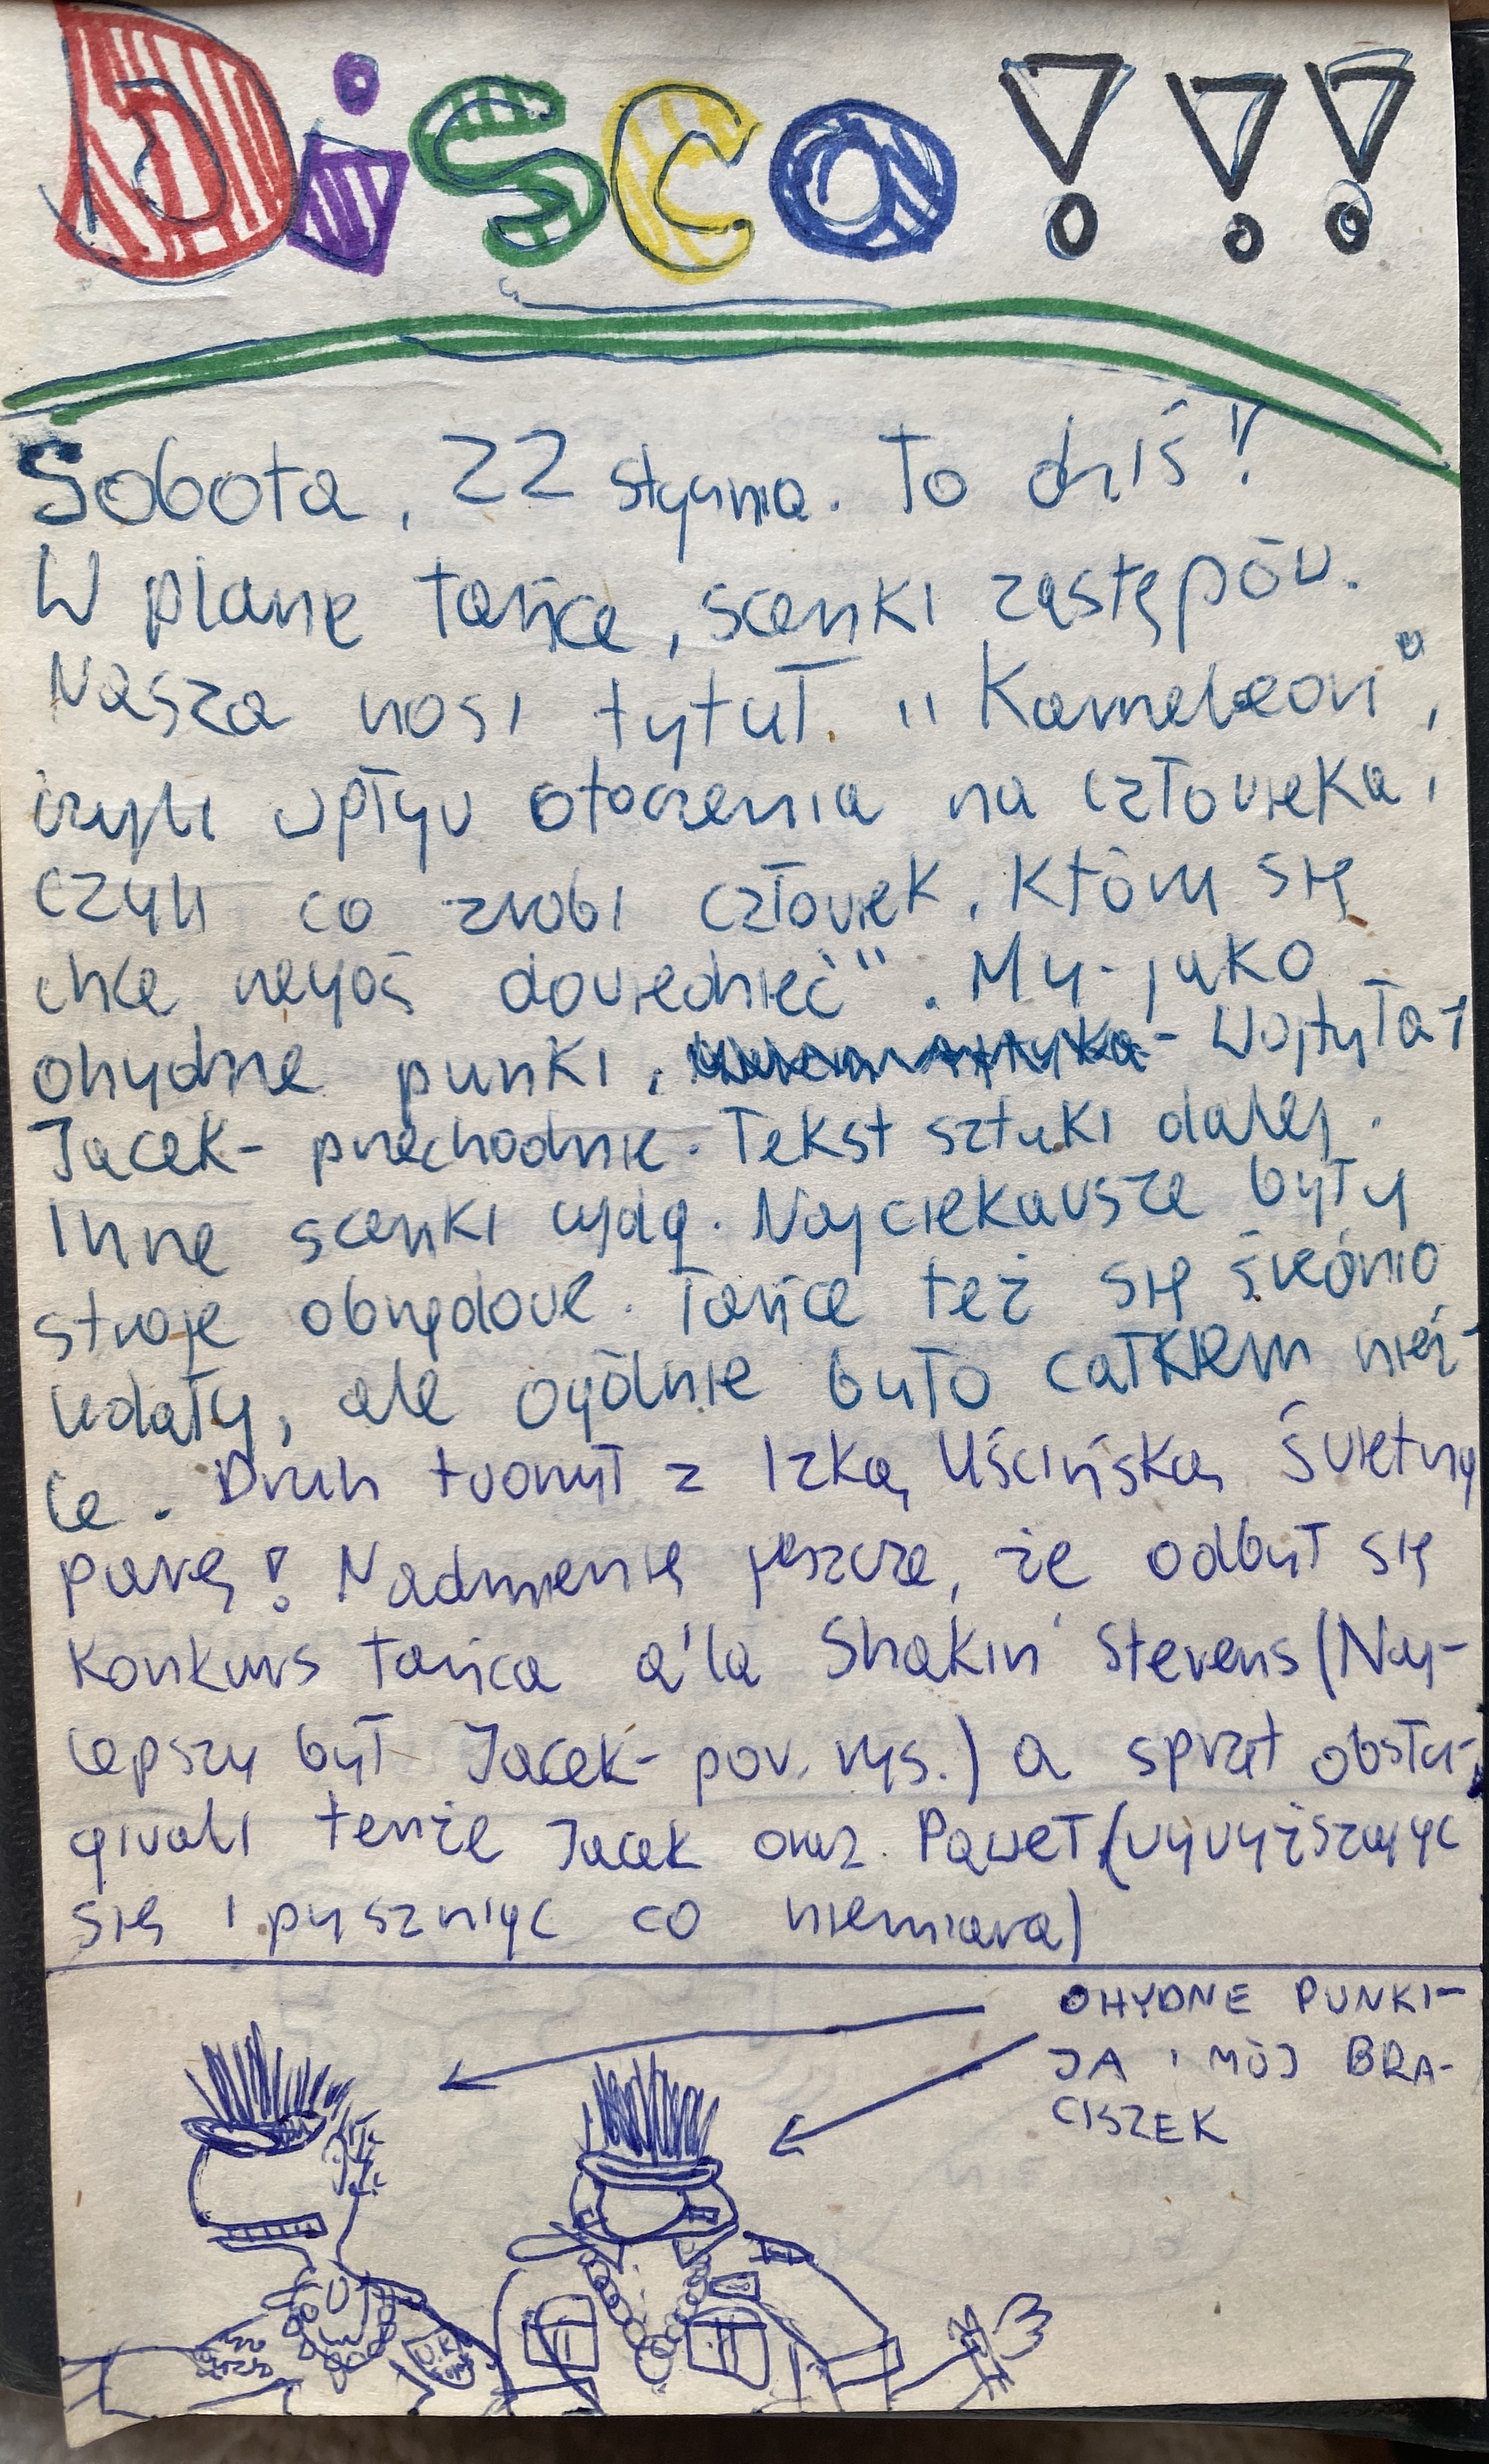 Disco!!!
Sobota, 22 stycznia. To dziś!
W planie tańce, scenki zastępów.
Nasza nosi tytuł. "Kameleon",
czyli wpływ otoczenia na człowieka,
czyli co zrobi człowiek, który się
chce czegoś dowiedzieć". My - jako
ohydne punki, - Wojtyła i
Jacek - przechodnie. Tekst sztuki dalej.
Inne scenki wyjdą. Najciekawsze były
stroje obrzędowe. Tańce też się średnio
udały, ale ogólnie było całkiem nieź-
le. Druh tworzył z Izką Uścińską świetną
parę! Nadmienię jeszcze, że odbył się
konkurs tańca a'la Shakin' Stevens (Naj-
lepszy był Jacek - pow. rys.) a sprzęt obsłu-
giwali tenże Jacek oraz Paweł (wywyższając
się i pyszniąc co niemiara)
OHYDNE PUNKI -
JA i MÓJ BRA-
CISZEK